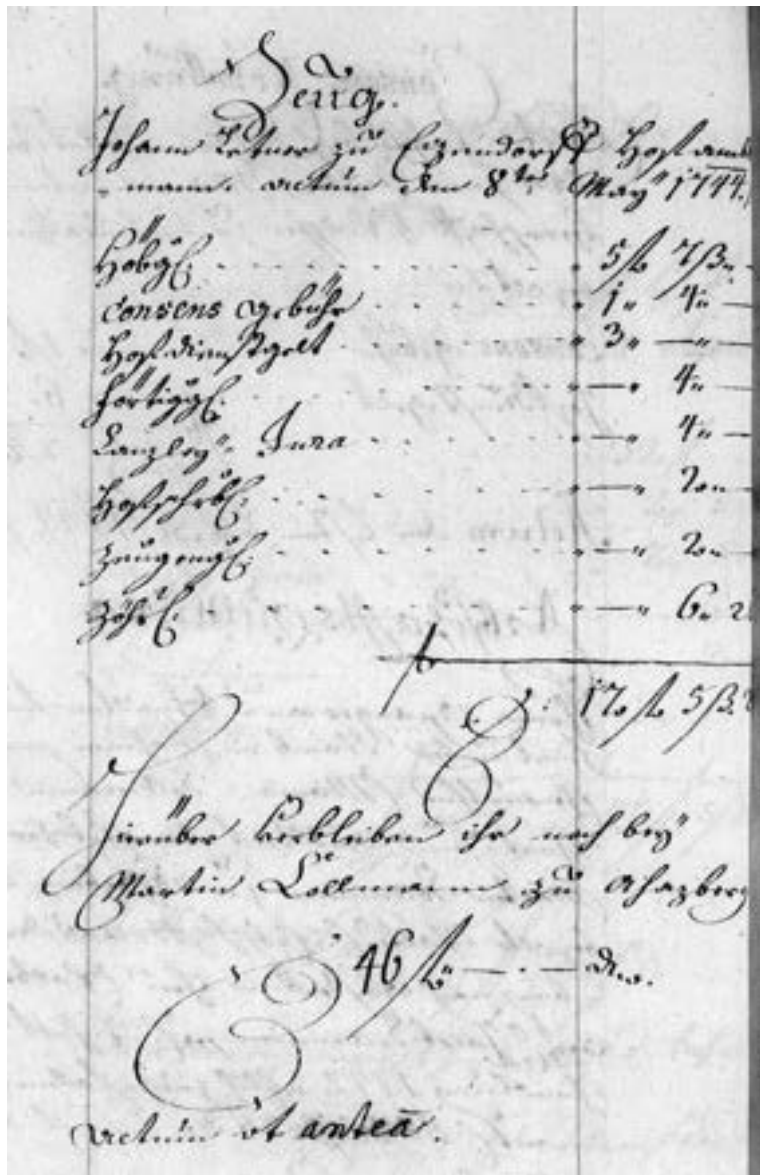 Zeug.
Johann Letner zu Eizendorff Hoff amt
mann. actum den 8ten May 1744.
Höbgl. 5 fl 7 ß
Consens gebühr 1 " 4 "
Hoffdienstgelt 3 " — "
förtiggl. — " 4 "
Canzley Jura — " 4 "
Hoffschrbl. — "
Zeugengl. — "
Zöhrl. — " 6 " 2
fl 5 ß
Hierüber verbleiben ihr noch bey
Martin Löllmann zu
46 fl — . — dn.
actum ut anteā.